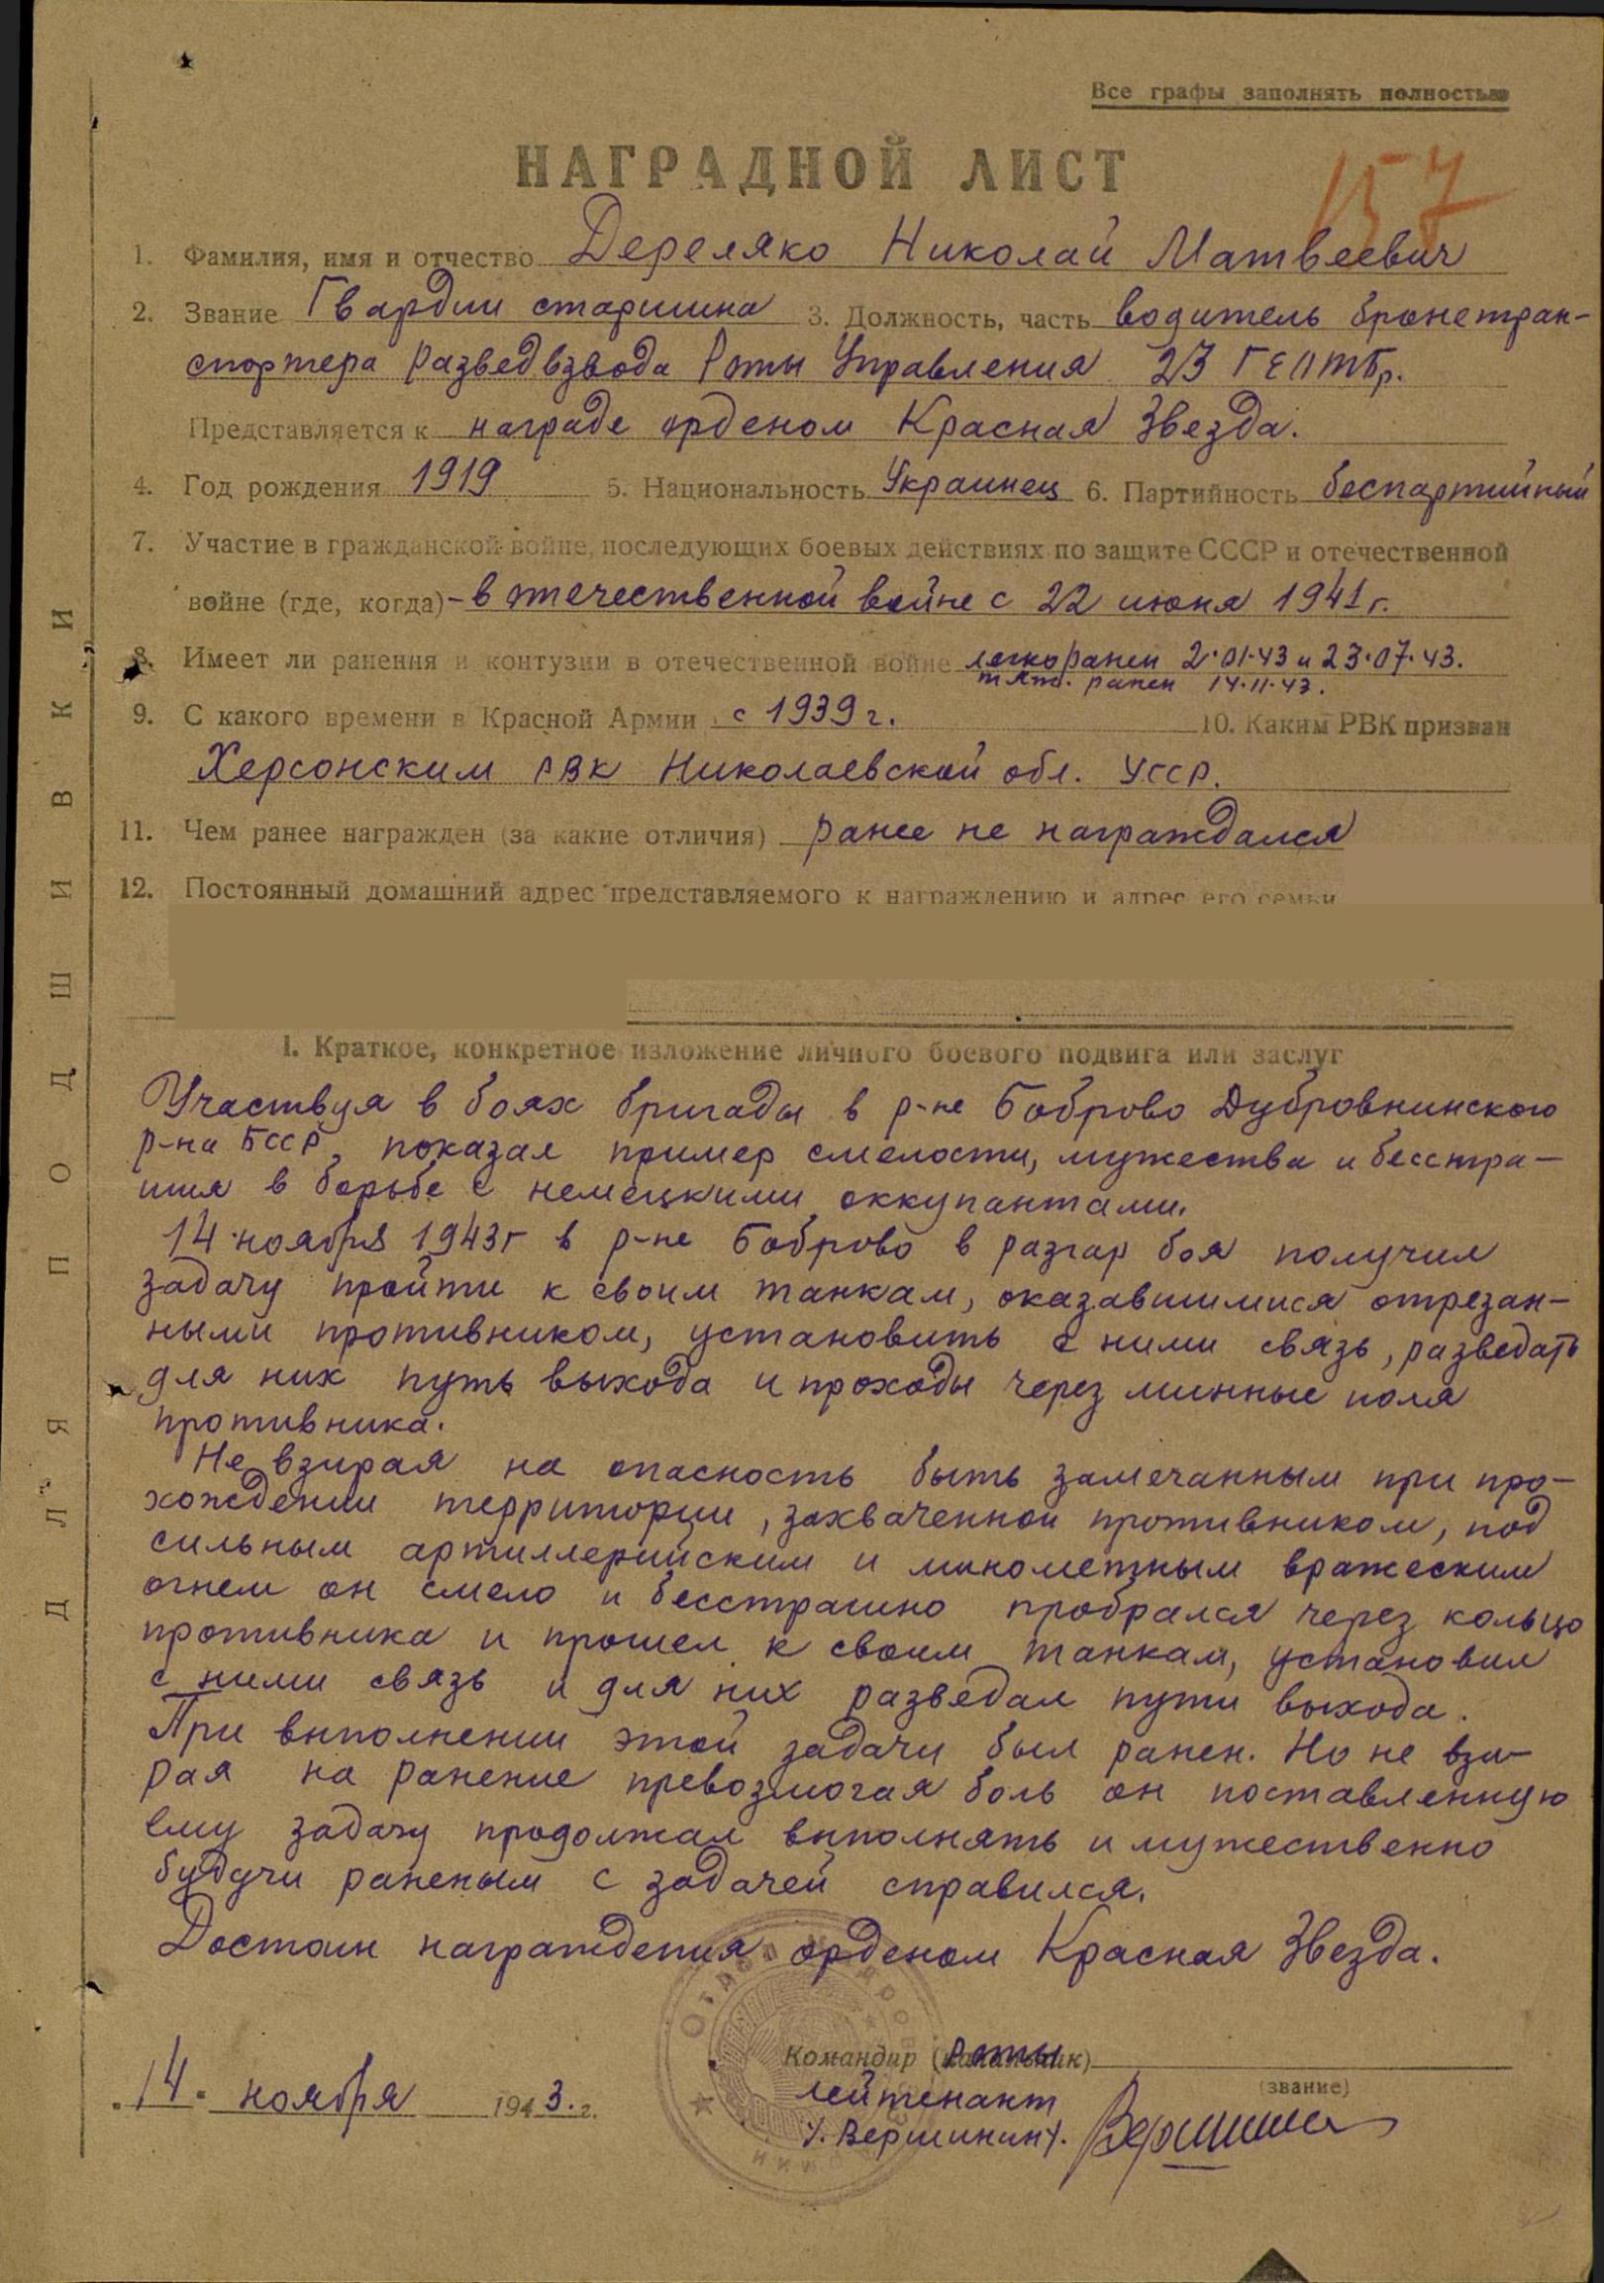 Все графы заполнять полностью
НАГРАДНОЙ ЛИСТ
157
1. Фамилия, имя и отчество Дереляко Николай Матвеевич
2. Звание Гвардии старшина 3. Должность, часть водитель бронетран-
спортера Разведвзвода Роты Управления 23 ГЕОТБр.
Представляется к награде орденом Красная Звезда.
4. Год рождения 1919 5. Национальность Украинец 6. Партийность беспартийный
7. Участие в гражданской войне, последующих боевых действиях по защите СССР и отечественной
войне (где, когда) - в отечественной войне с 22 июня 1941 г.
8. Имеет ли ранения и контузии в отечественной войне легко ранен 2.01.43 и 23.07.43.
ранен 14.11.43.
9. С какого времени в Красной Армии с 1939 г. 10. Каким РВК призван
Херсонским РВК Николаевской обл. УССР.
11. Чем ранее награжден (за какие отличия) ранее не награждался
12. Постоянный домашний адрес представляемого к награждению и адрес его семьи
I. Краткое, конкретное изложение личного боевого подвига или заслуг
Участвуя в боях бригады в р-не Боброво Дубровнинского
р-на БССР, показал пример смелости, мужества и бесстра-
шия в борьбе с немецкими оккупантами.
14 ноября 1943г в р-не Боброво в разгар боя получил
задачу пройти к своим танкам, оказавшимися отрезан-
ными противником, установить с ними связь, разведать
для них путь выхода и проходы через минные поля
противника.
Не взирая на опасность быть замечанным при про-
хождении территории, захваченной противником, под
сильным артиллерийским и минометным вражеским
огнем он смело и бесстрашно пробрался через кольцо
противника и прошел к своим танкам, установил
с ними связь и для них разведал пути выхода.
При выполнении этой задачи был ранен. Но не взи-
рая на ранение превозмогая боль он поставленную
ему задачу продолжал выполнять и мужественно
будучи раненым с задачей справился.
Достоин награждения орденом Красная Звезда.
Командир (начальник) роты
(звание)
14. ноября 1943. г.
лейтенант
/. Вершинин/.
ДЛЯ ПОДШИВКИ